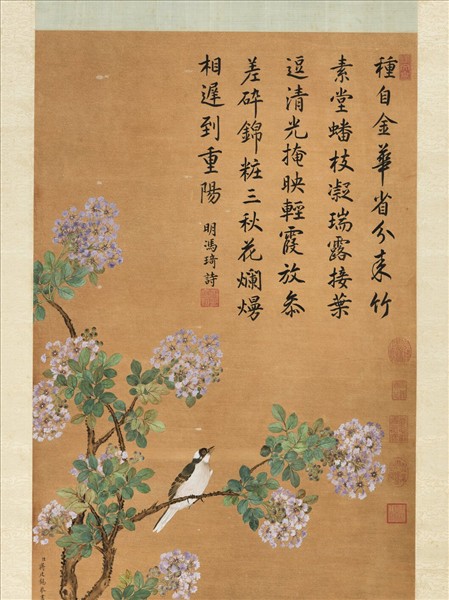 種自金華省分来竹
素堂蟠枝凝瑞露接葉
逗清光掩映輕霞放叅
差碎錦粧三秋花爛熳
相遲到重陽
明馮琦詩